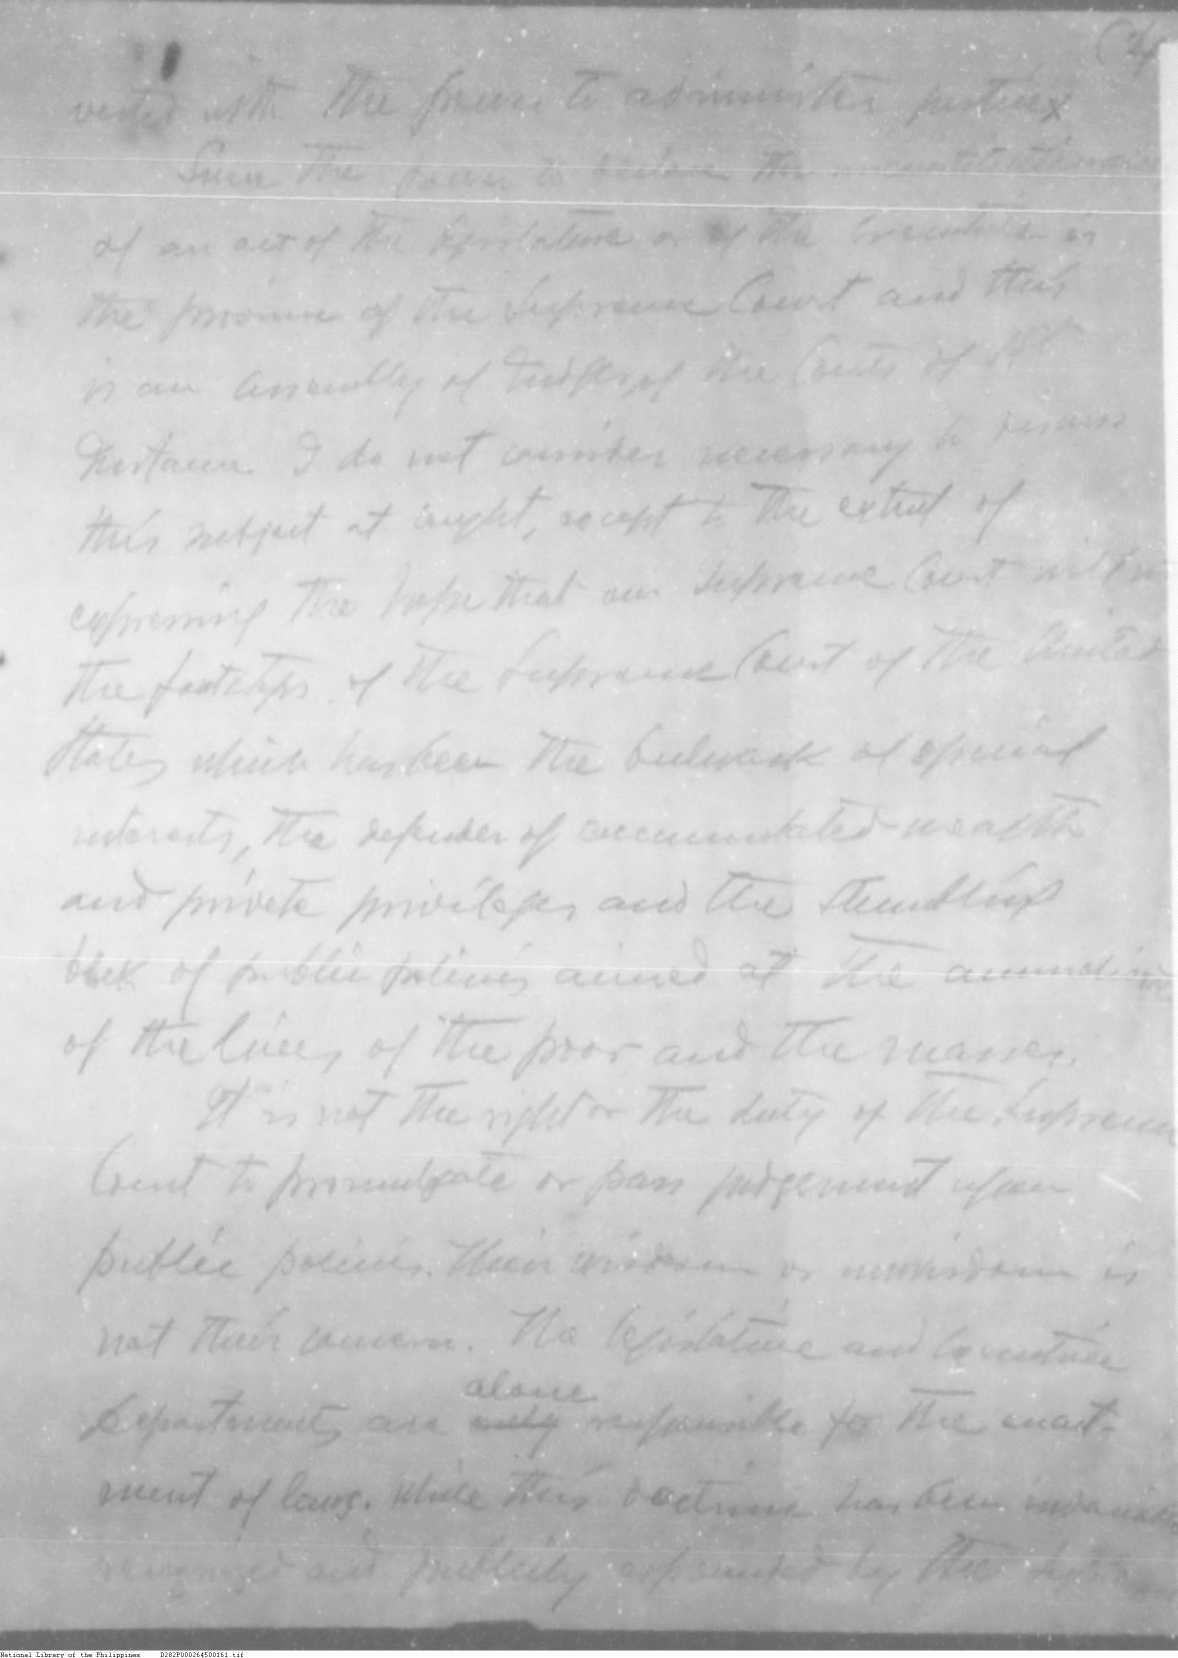 (4
vested with the power to administer justice
Since the power to declare the unconstitutionality
of an act of the Legislature or of the Executive is
the province of the Supreme Court and this
is an Assembly of Judges of the Courts of 1st
Instance. I do not consider necessary to discuss
this subject at length, except to the extent of
expressing the hope that our Supreme Court
the footsteps of the Supreme Court of the United
States which has been the bulwark of special
interests, the defender of accumulated wealth
and private privileges, and the stumbling
block of public policies aimed at the
of the lives of the poor and the masses.
It is not the right or the duty of the Supreme
Court to promulgate or pass judgement upon
public policies. Their wisdom or unwisdom is
not their concern. The Legislative and Executive
alone
Departments are only responsible for the enact-
ment of laws. While this doctrine has been
recognized and publicly expounded by the
National Library of the Philippines D282P000264500161.tif